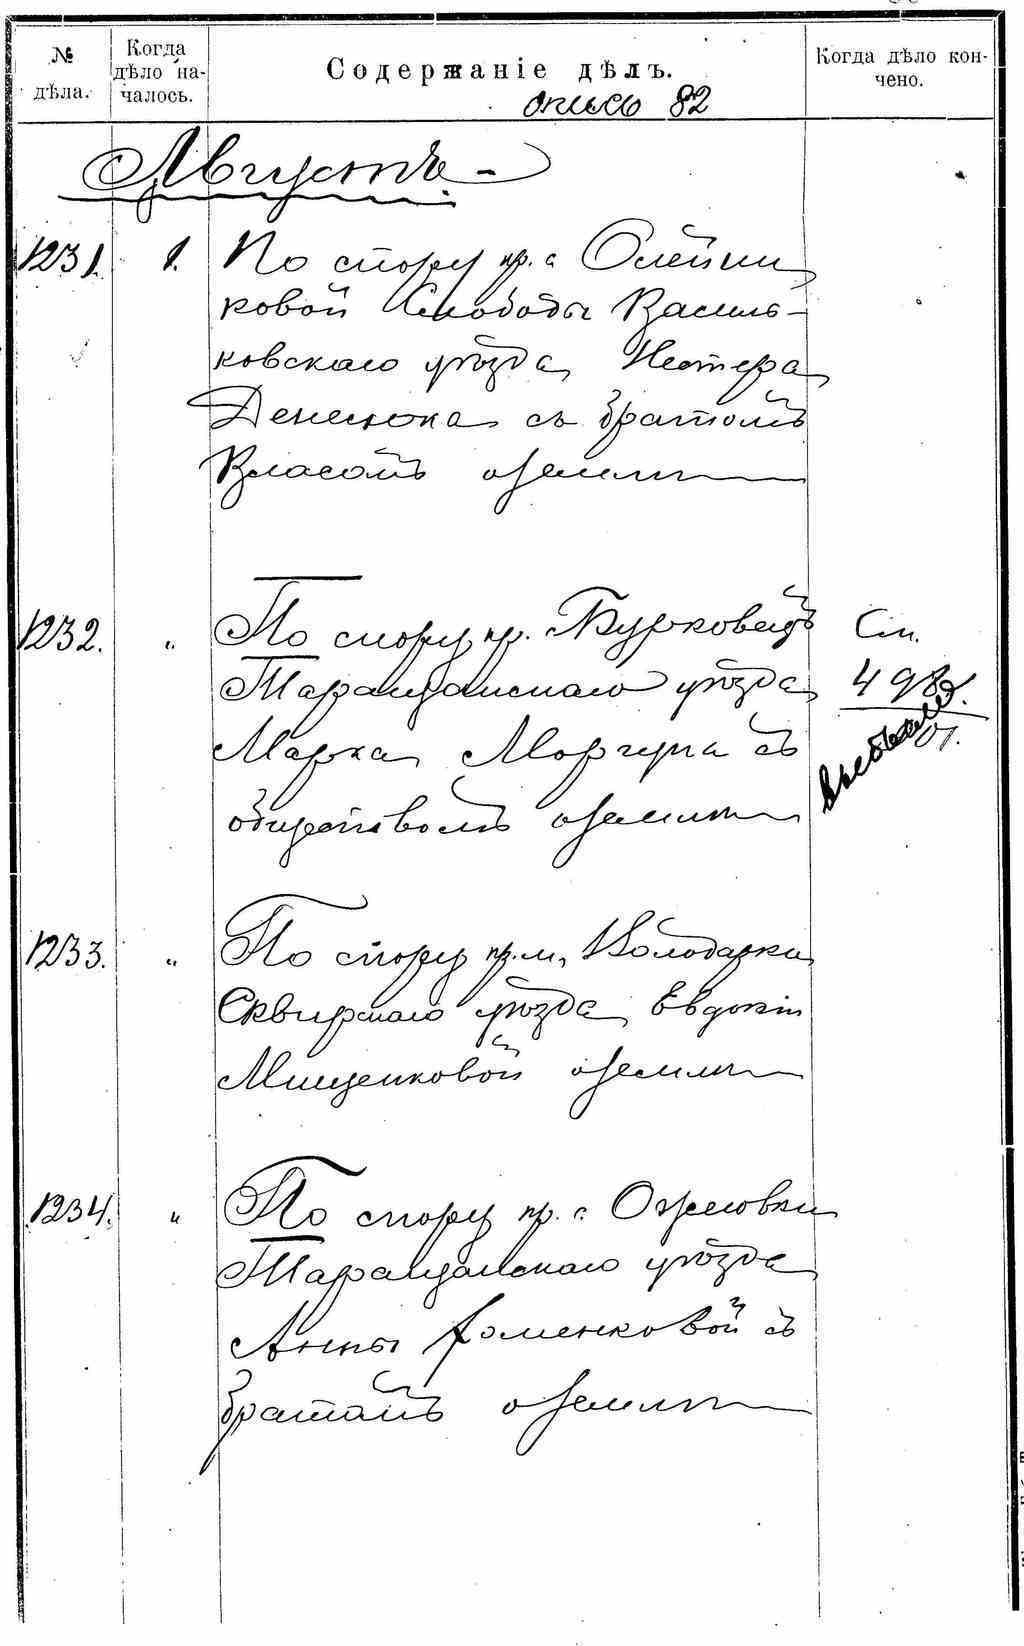 № дѣла.
Когда дѣло началось.
Содержаніе дѣлъ.
Когда дѣло кончено.
опись 82
Августъ
1231. 1. По спору кр. с Олейни
ковой Слободы Василь-
ковскаго уѣзда Нестера
Денисюка съ братомъ
Власомъ о землѣ
1232. „ По спору кр. Бурковецъ См.
Таращанскаго уѣзда 498
Марка Моргуна съ 01.
обществомъ о землѣ
1233. „ По спору кр. м. Володарки
Сквирскаго уѣзда Евдокіи
Мищенковой о землѣ
1234. „ По спору кр. с.
Таращанскаго уѣзда
Анны Хоменковой съ
братомъ о землѣ